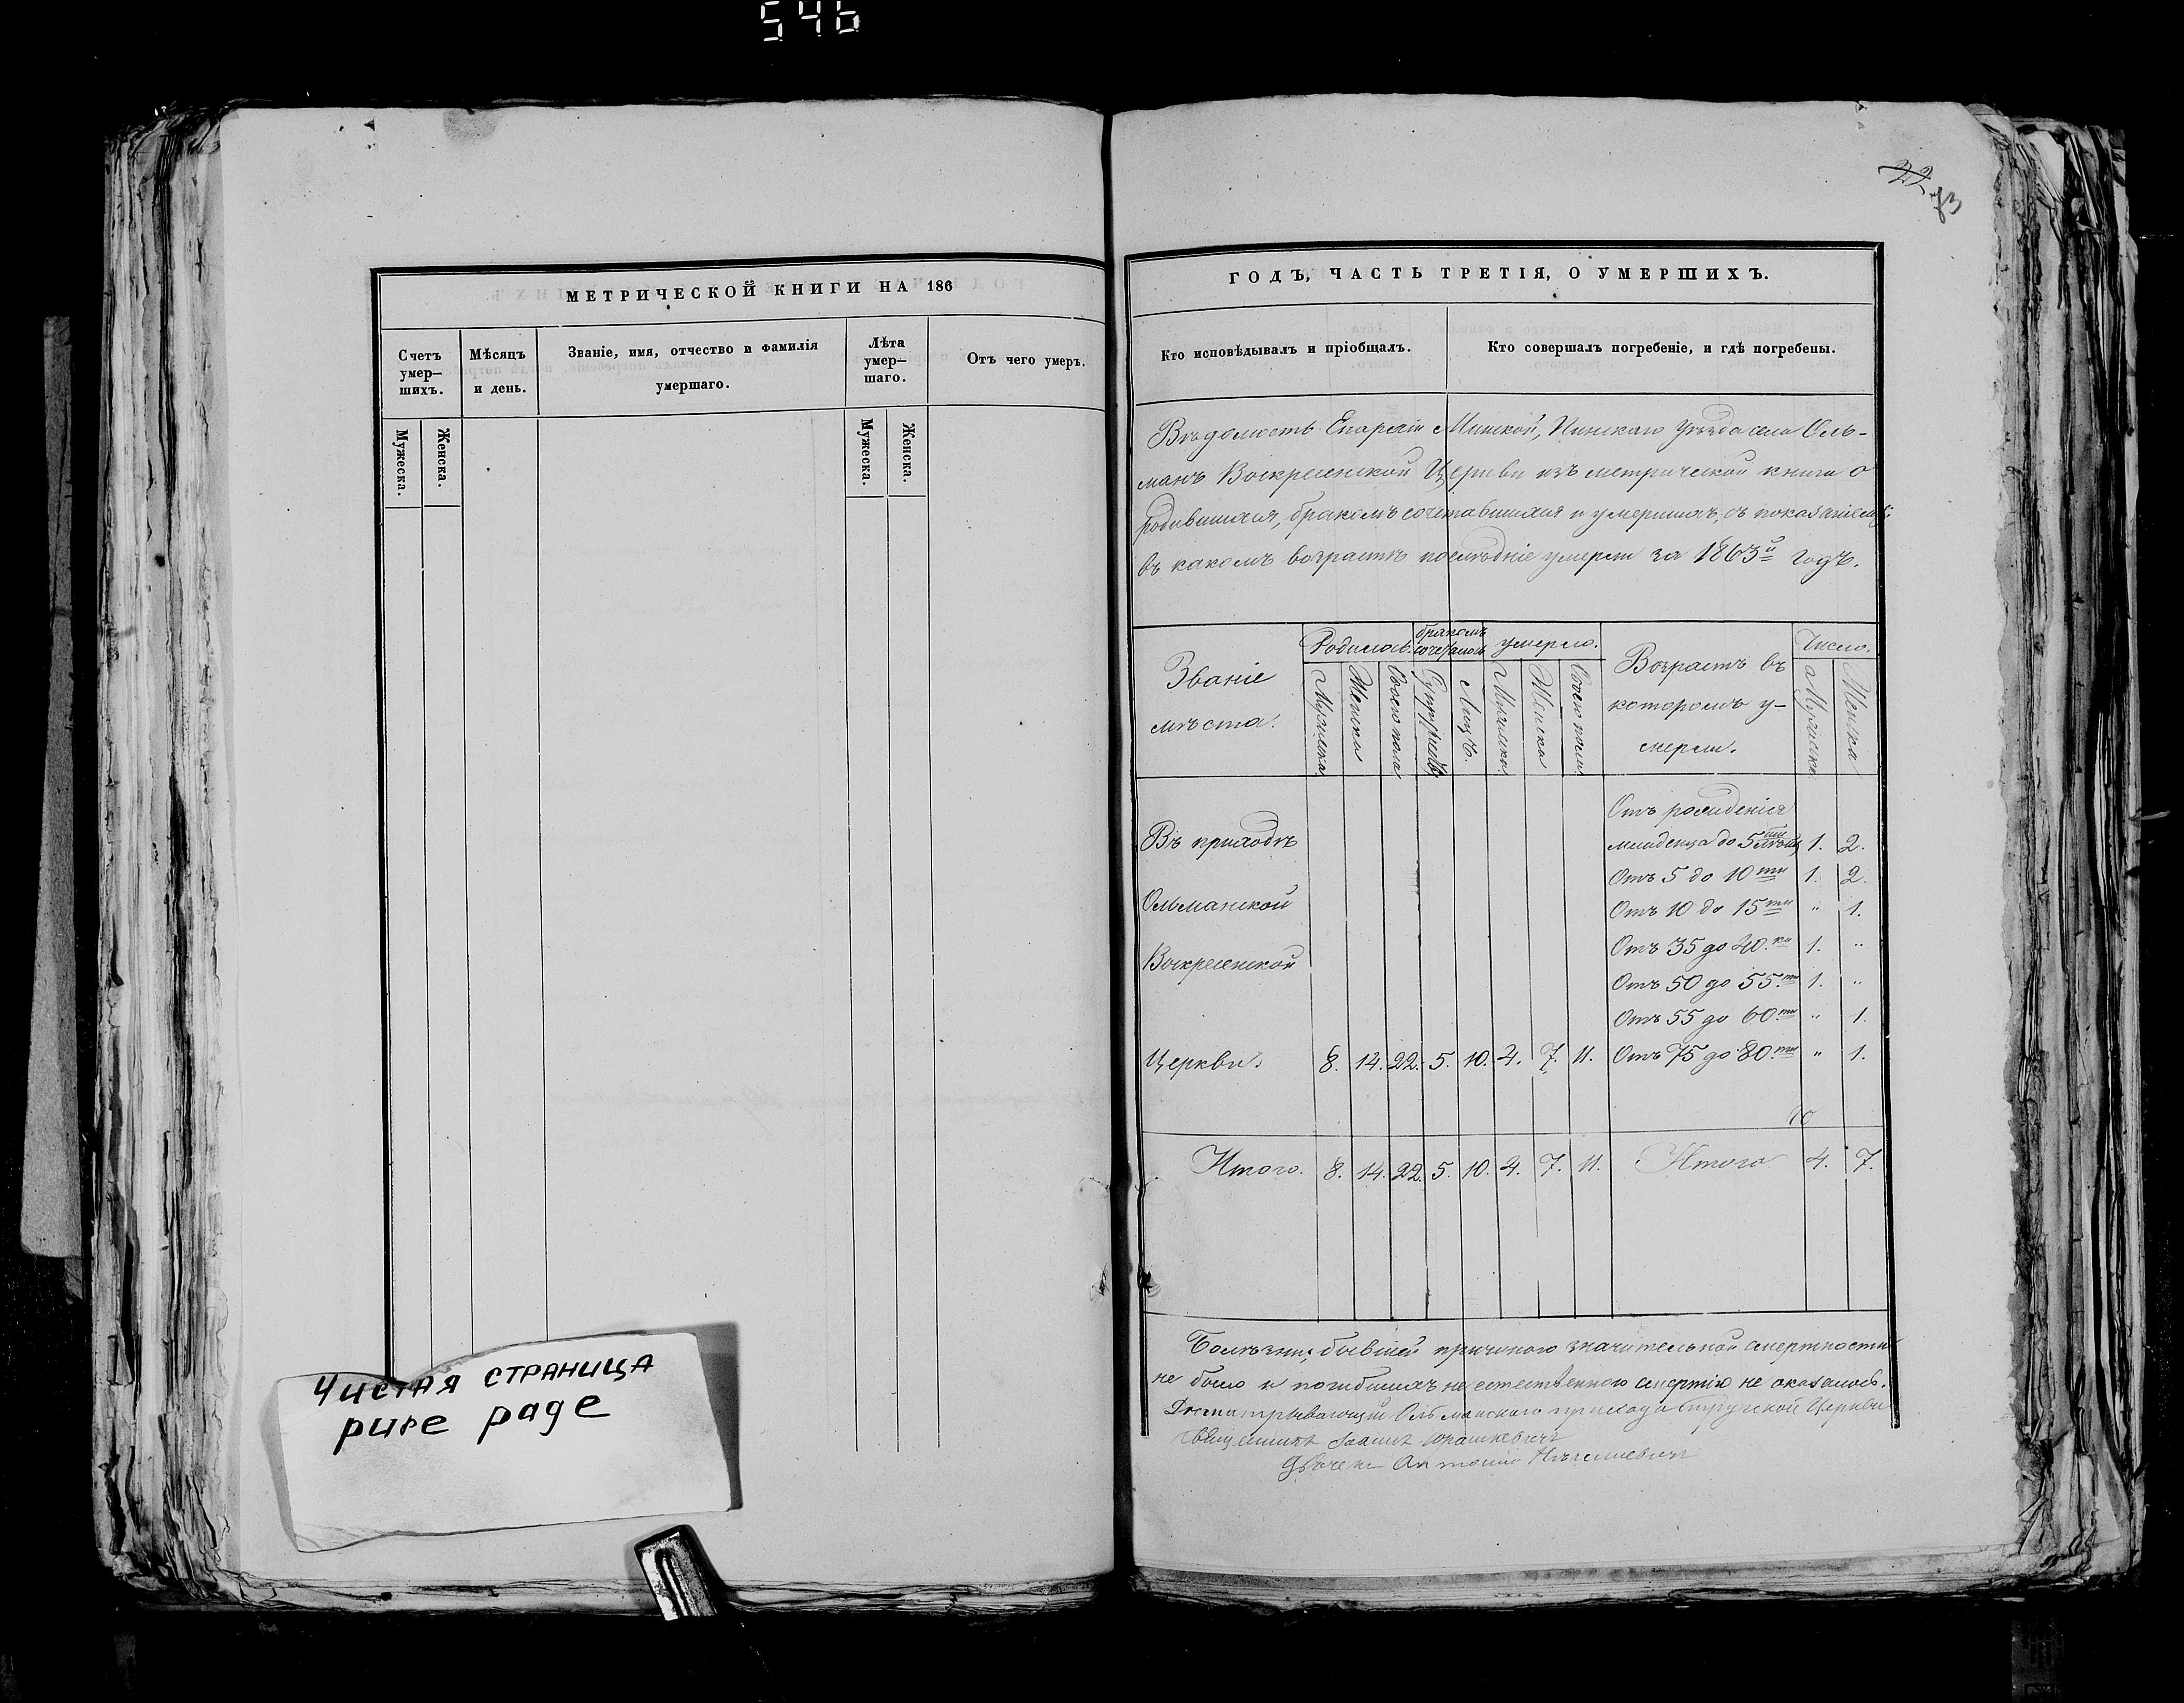 546
МЕТРИЧЕСКОЙ КНИГИ НА 186
Счетъ умер-шихъ.
Мѣсяцъ и день.
Званіе, имя, отчество и фамилія умершаго.
Лѣта умер-шаго.
Отъ чего умеръ.
Мужеска.
Женска.
Мужеска.
Женска.
Чистая страница
pure page
22
73
ГОДЪ, ЧАСТЬ ТРЕТІЯ, О УМЕРШИХЪ.
Кто исповѣдывалъ и пріобщалъ.
Кто совершалъ погребеніе, и гдѣ погребены.
Вѣдомость Епархіи Минской, Пинскаго Уѣзда села Оль-
манъ Воскресенской Церкви изъ метрической книги о
родившихся, бракомъ сочетавшихся и умершихъ, съ показаніемъ:
въ какомъ возрастѣ послѣдніе умерли за 1863й годъ.
Званіе
мѣста.
Родилось.
бракомъ
сочеталось
умерло.
Возрастъ въ
которомъ у-
мерли.
Число.
Мужеска
Женска
Обоего пола
Супружествъ
Лицъ.
Мужеска
Женска
Обоего пола
Мужеска
Женска
Отъ рожденія
Въ приходѣ
младенца до 5ти лѣтъ 1. 2.
Отъ 5 до 10ти 1. 2.
Ольманской
Отъ 10 до 15ти " 1.
Отъ 35 до 40.ка 1. "
Воскресенской
Отъ 50 до 55.ти 1. "
Отъ 55 до 60.ти " 1.
Церкви. 8. 14. 22. 5. 10. 4. 7. 11. Отъ 75 до 80.ти " 1.
Итого. 8. 14. 22. 5. 10. 4. 7. 11. Итого 4. 7.
Болѣзни, бывшей причиною значительной смертности
не было и погибшихъ не естественною смертію не оказалось.
Ольманскаго прихода Стружской Церкви
Священникъ Іоаннъ Юрашкевичъ
Антоній